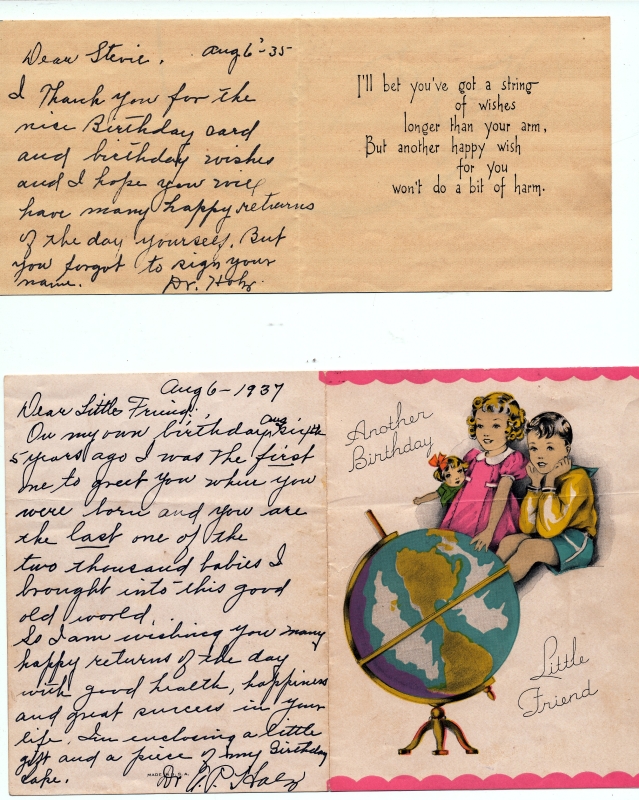 Dear Stevie. Aug 6'-35
I Thank you for the
nise Birthday card
and birthday wishes
and I hope you will
have many happy returns
of the day yourself. But
you forgot to sign your
name. Dr. Holz
I'll bet you've got a string
of wishes
longer than your arm,
But another happy wish
for you
won't do a bit of harm.
Aug 6-1937
Dear Little Friend!,
On my own birthday Aug sixth
5 years ago I was the first
one to greet you when you
were born and you are
the last one of the
two thousand babies I
brought into this good
old world.
So I am wishing you many
happy returns of the day
with good health, happiness
and great success in your
life. I'm enclosing a little
gift and a piece of my Birthday
cake. Dr Holz
MADE IN U.S.A.
Another
Birthday
Little
Friend